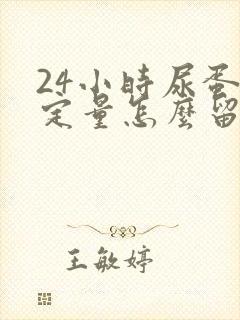 24小時尿蛋
定量怎麼留
王敏婷